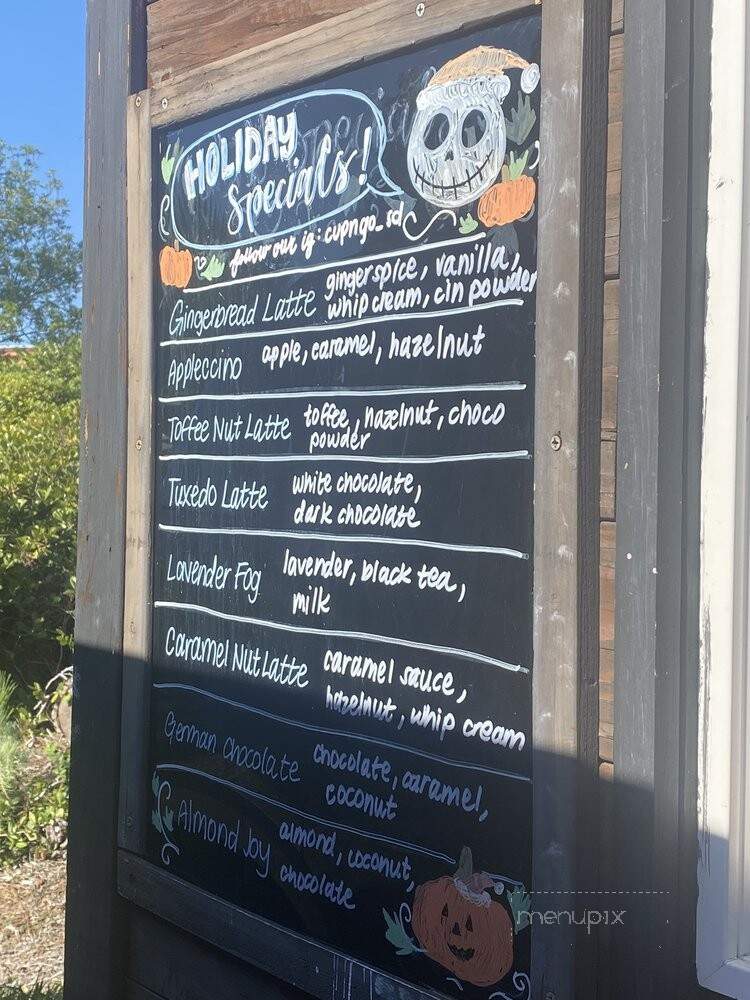 HOLIDAY
Specials!
follow our ig: cupngo_sd
Gingerbread Latte gingerspice, vanilla,
whip cream, cin powder
Appleccino apple, caramel, hazelnut
Toffee Nut Latte toffee, hazelnut, choco
powder
Tuxedo Latte white chocolate,
dark chocolate
Lavender Fog lavender, black tea,
milk
Caramel Nut Latte caramel sauce,
hazelnut, whip cream
German Chocolate chocolate, caramel,
coconut
Almond Joy almond, coconut,
chocolate
menupix